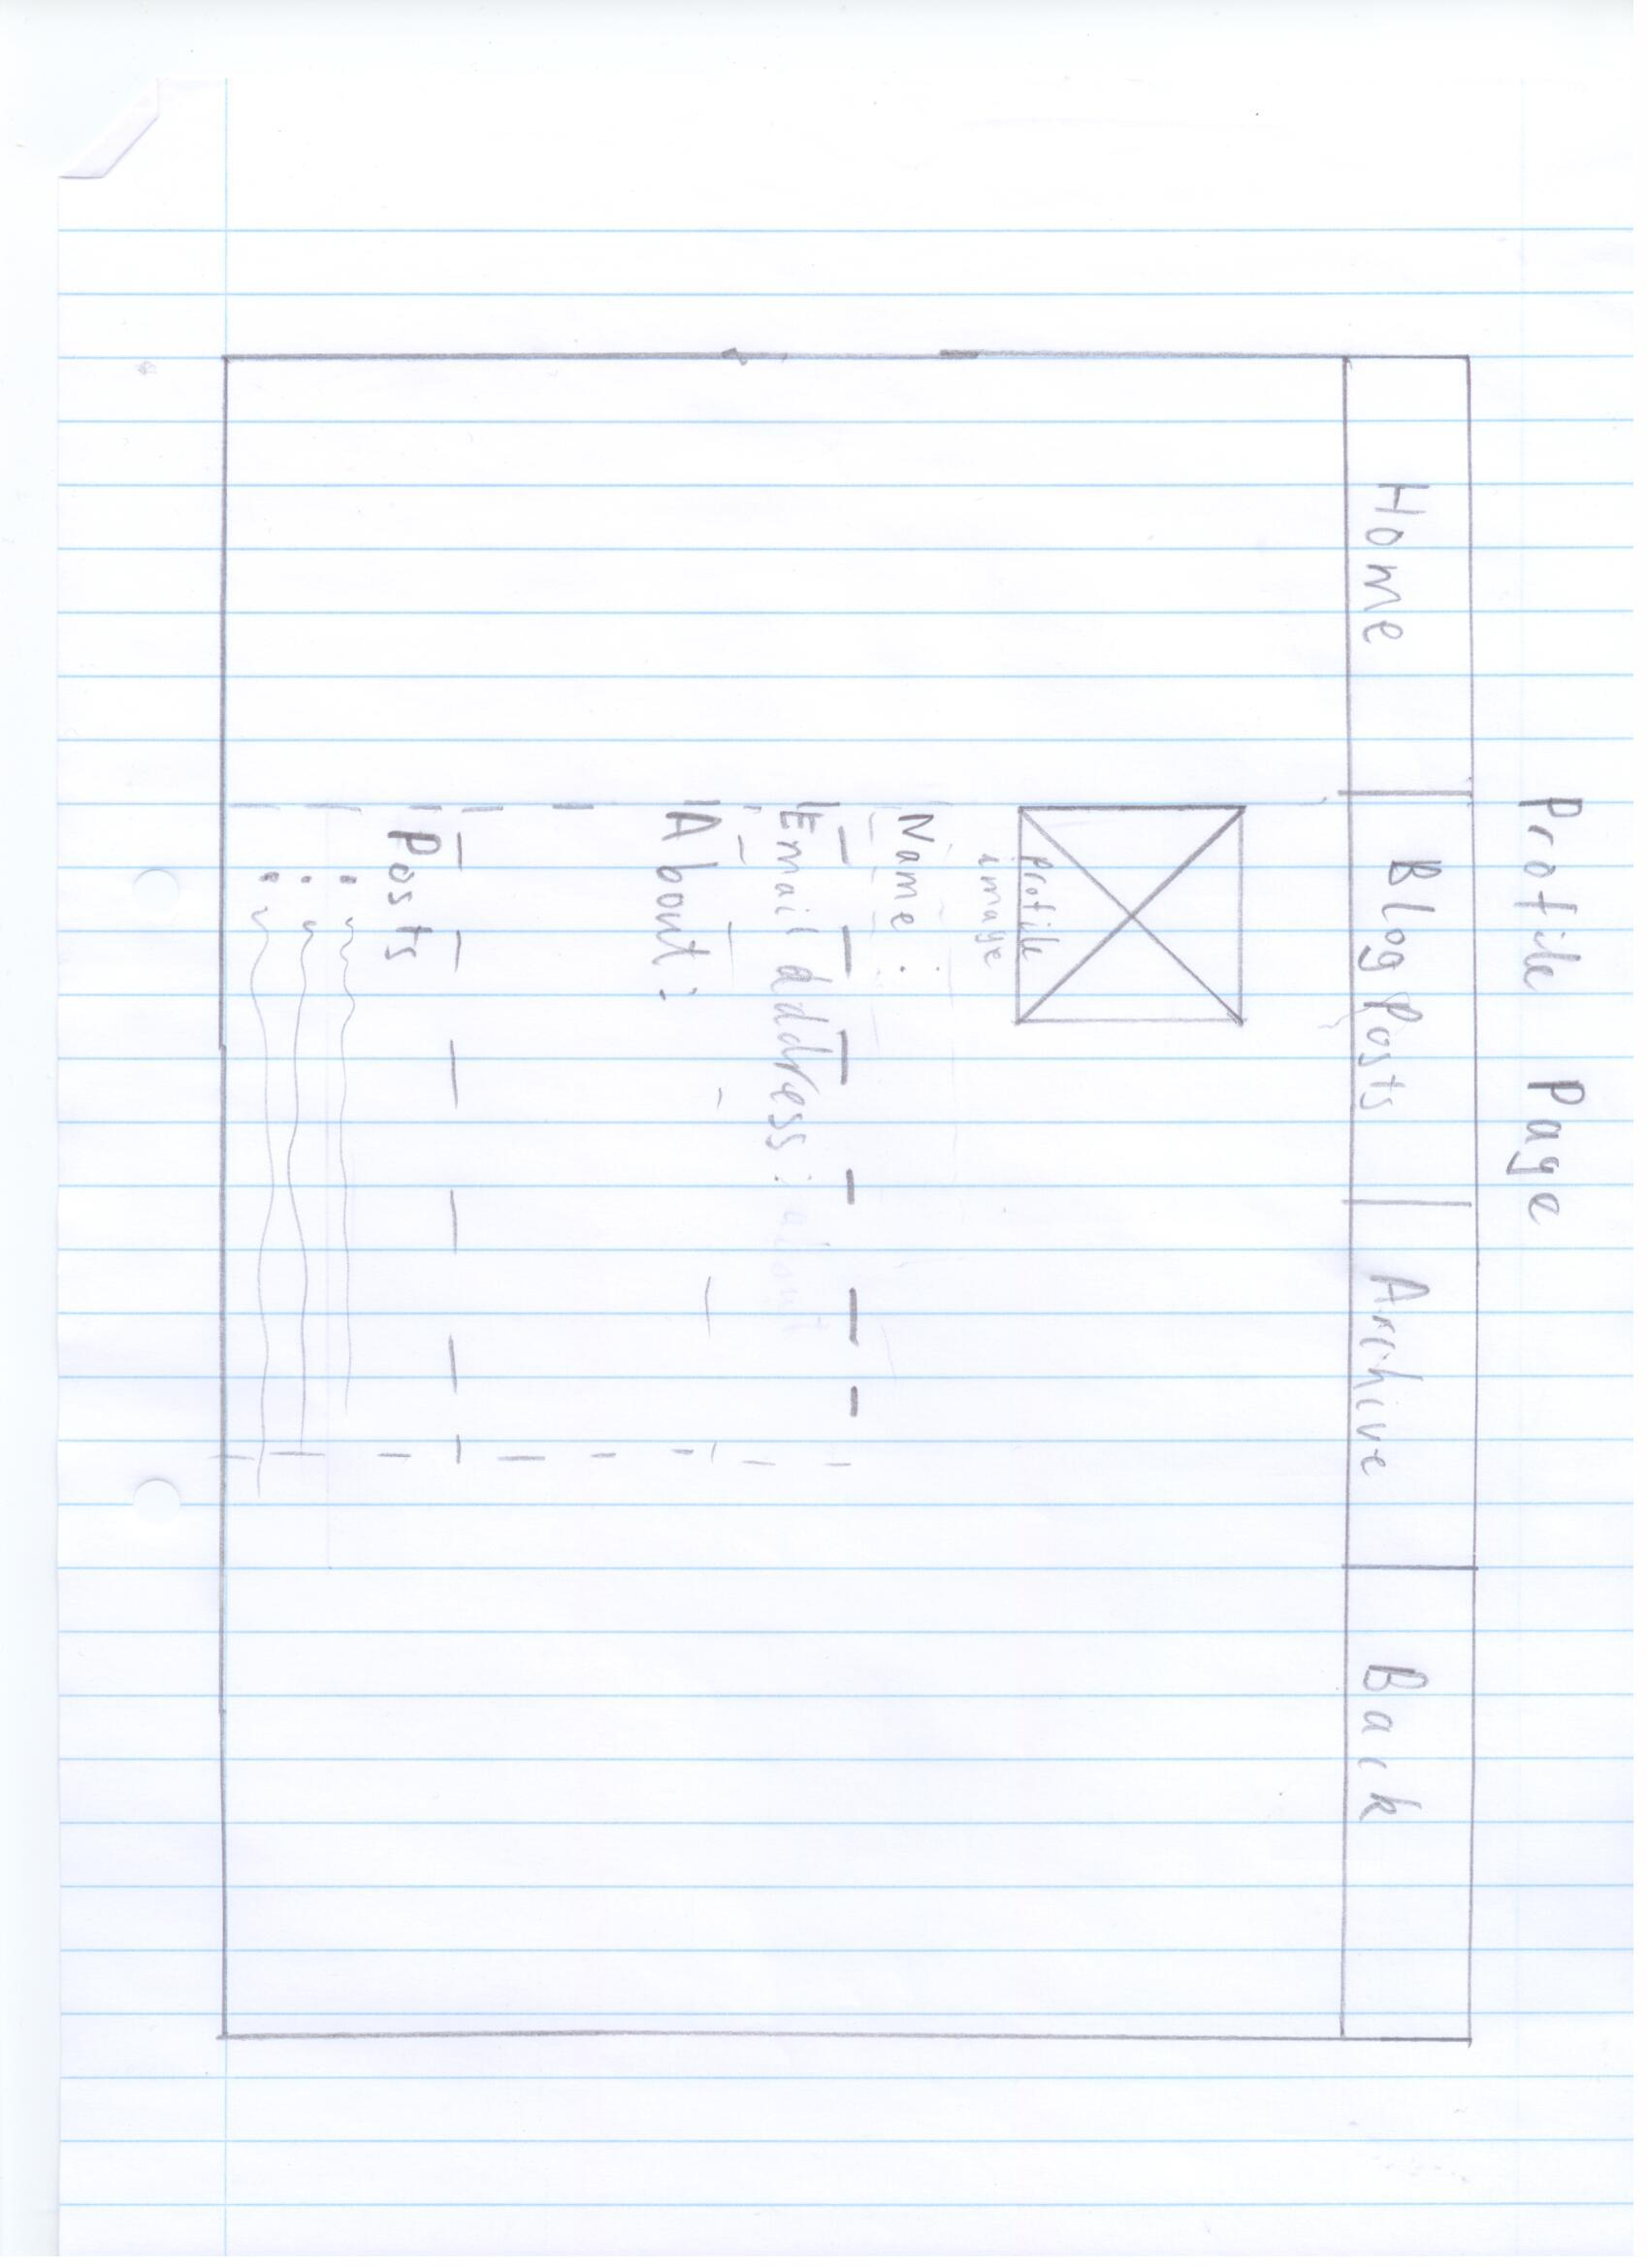 Profile Page
Home Blog Posts Archive Back
profile
image
Name :
Email address :
About :
Posts